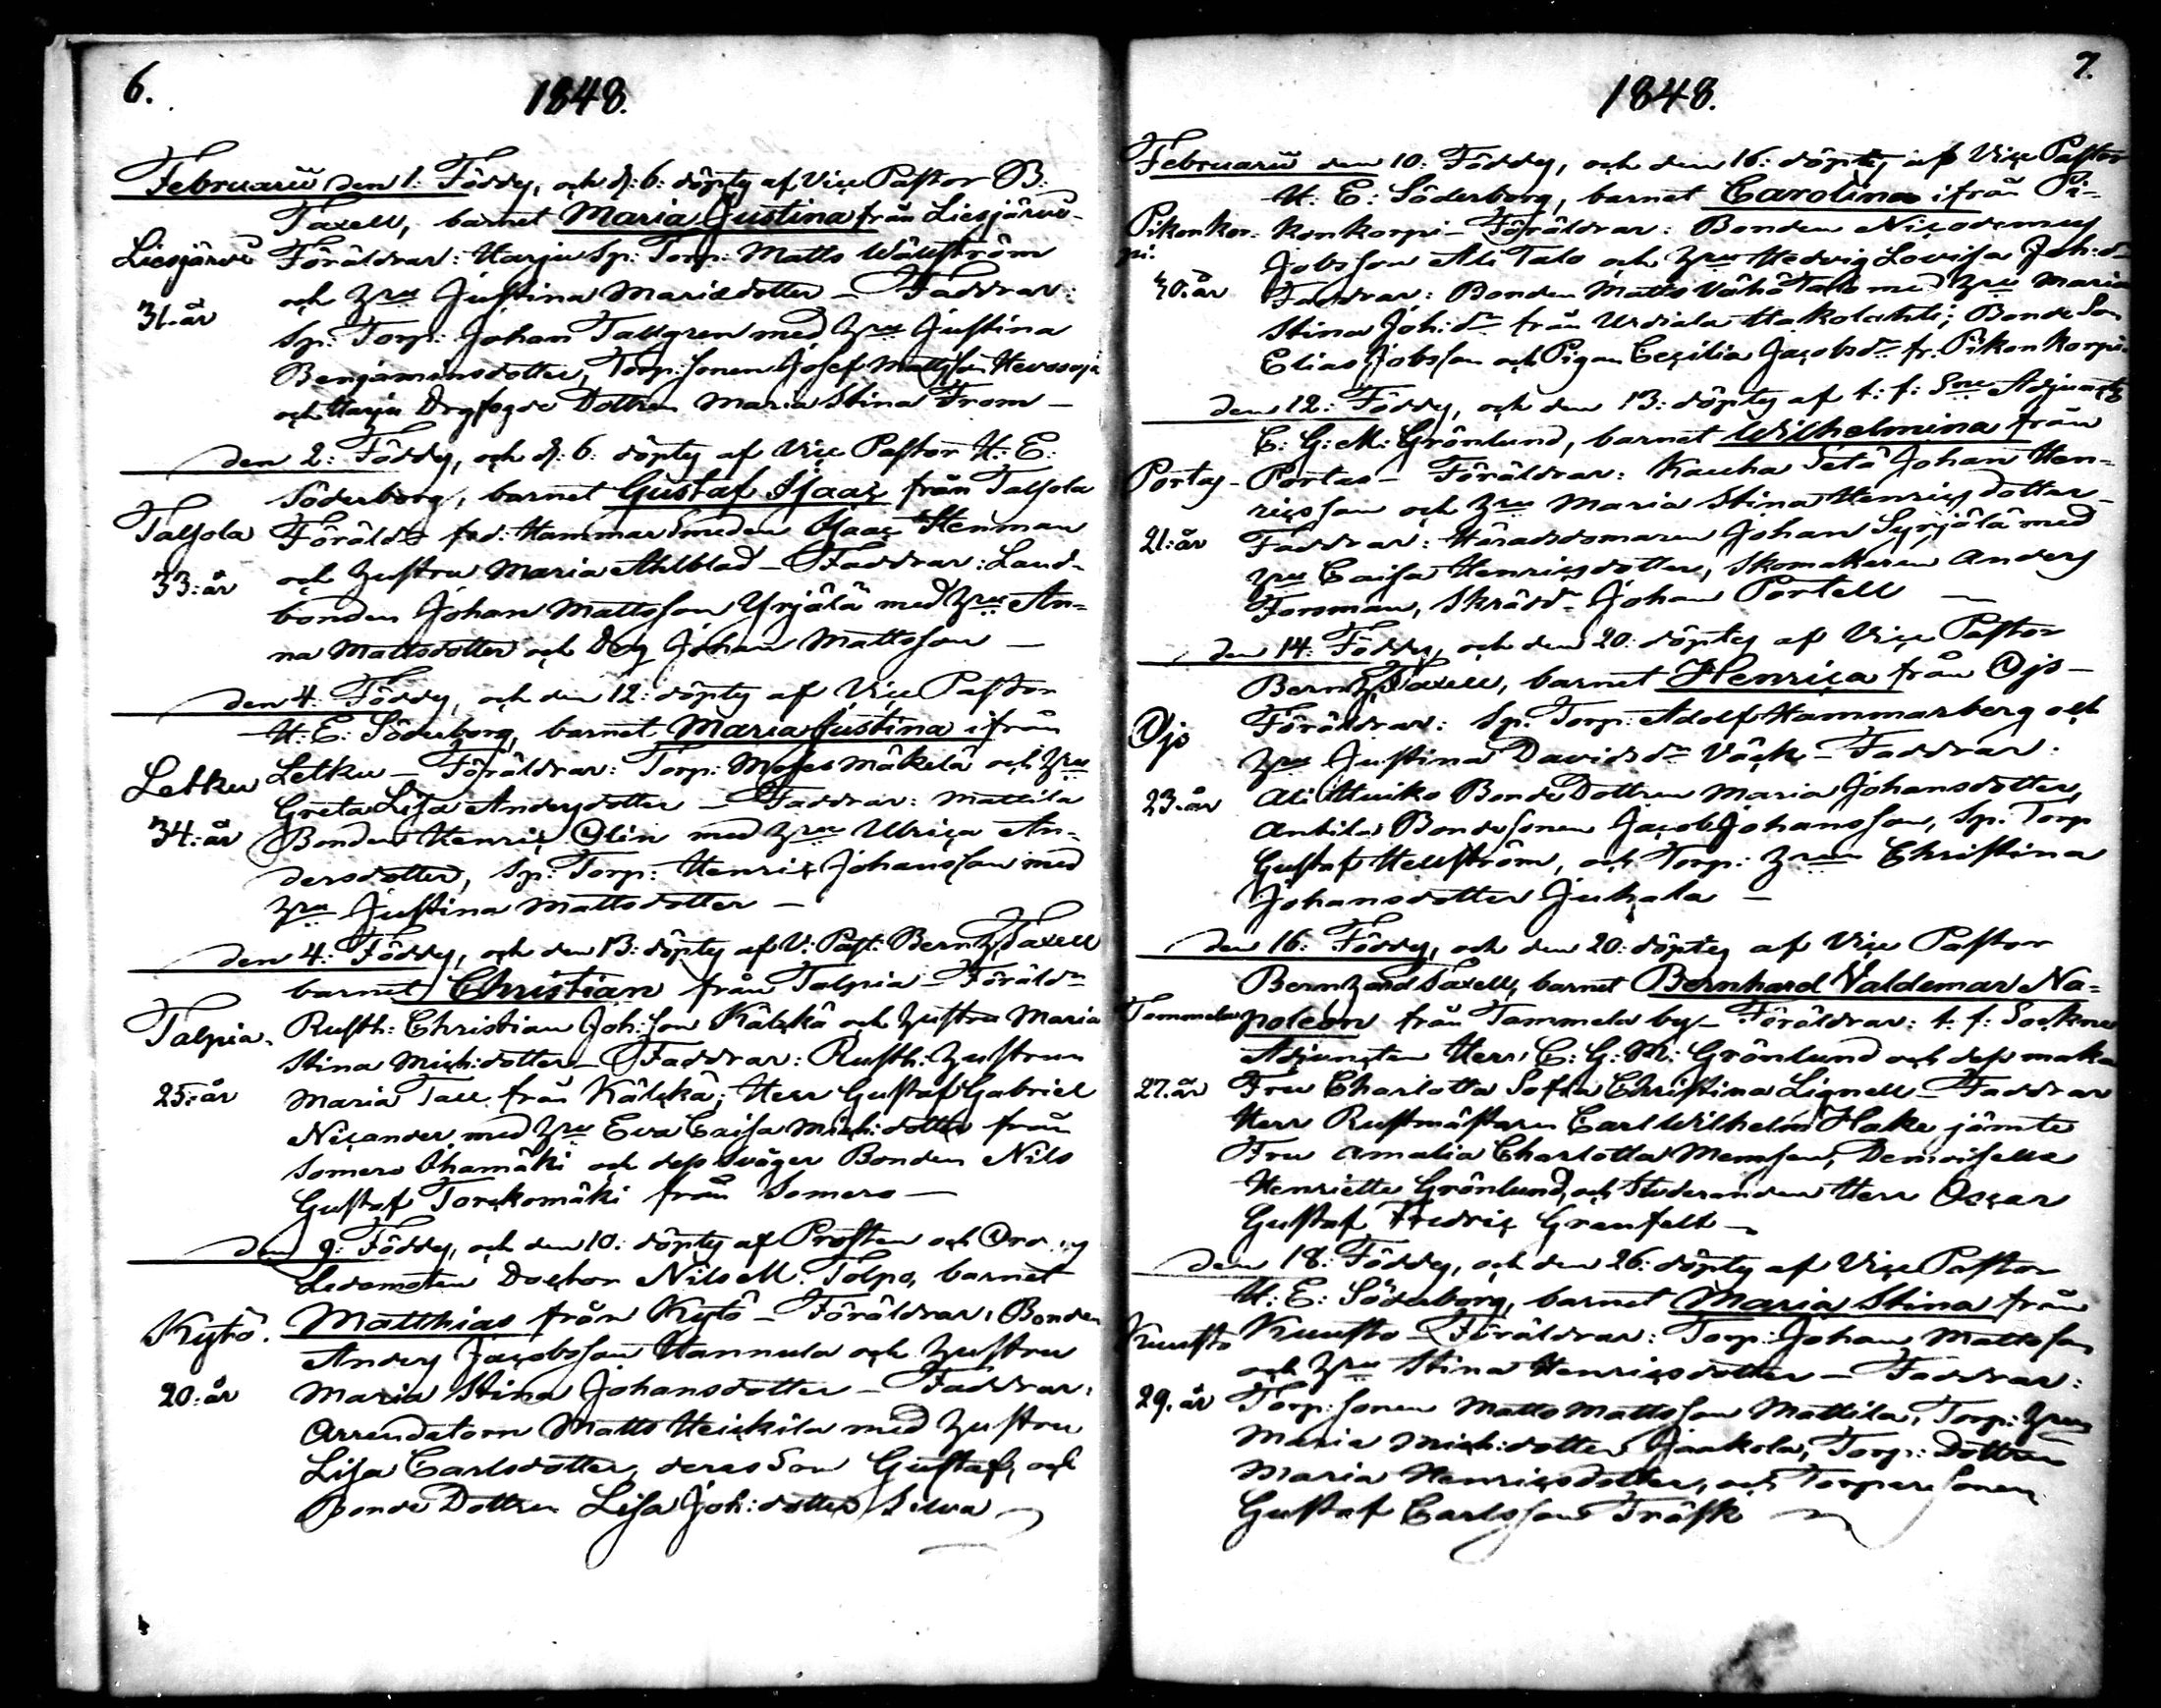 6.
1848.
Februarii den 1: Föddes, och d: 6: döptes af Vice Pastor B:
Taxell, barnet Maria Justina från Liesjärvi-
Liesjärvi Föräldrar: Harju Sp: Torp: Matts Wällström
och Hustru Justina Mariædotter – Faddrar:
31. år
Sp: Torp: Johan Tallgren med Hustru Justina
Benjaminsdotter, Torp: sonen Josef Mattsson
och Harju Drgfogde Dottren Maria Stina From –
den 2: Föddes, och d: 6: döptes af Vice Pastor H: E:
Söderborg, barnet Gustaf Isaac från Talsola
Talsola Föräldr: Hammarsmeden Isaac Stenman
33: år och Hustru Maria Ahlblad – Faddrar: Land-
bonden Johan Mattsson Yrjälä med Hustru An=
na Mattsdotter och Drg Johan Mattsson –
den 4: Föddes, och den 12: döptes af Vice Pastor
H: E: Söderborg, barnet Maria Justina ifrån
Letku Letku – Föräldrar: Torp: Moses Mäkilä och Hustru
Greta Lisa Andersdotter – Faddrar: Mattila
34: år Bonden Henric Olin med Hustru Ulrica An=
dersdotter, Sp: Torp: Henric Johansson med
Hustru Justina Mattsdotter –
den 4: Föddes, och den 13: döptes af V: Past: Bernh: Taxell
barnet Christian från Talpia – Föräldr
Talpia. Rusth: Christian Joh:son Kälkä och Hustru Maria
Stina Mich:dotter – Faddrar: Rusth: Hustrun
25: år Maria Tall från Kälkä; Herr Gustaf Gabriel
Nicander med Hustru Eva Caisa Mich:dotter från
Somero Ihamäki och dess svåger Bonden Nils
Gustaf Torckomäki från Somero –
den 9: Föddes, och den 10: döptes af Prosten och
Ledamoten Doctor Nils M. Tolpo, barnet
Kytö. Matthias från Kytö – Föräldrar: Bonden
Anders Jacobsson Hannula och Hustru
20: år Maria Stina Johansdotter – Faddrar:
Arrendatorn Matts Heickilä med Hustru
Lisa Carlsdotter, deras Son Gustaf, och
Bonde Dottren Lisa Joh:dotter Silva
7.
1848.
Februarii den 10: Föddes, och den 16: döptes af Vice Pastor
H: E: Söderborg, barnet Carolina ifrån Pi-
Pikonkor= konkorpi – Föräldrar: Bonden Nicodemus
pi. Jobsson Ali Talo och Hustru Hedvig Lovisa Joh:dr
40. år Faddrar: Bonden Matts Vähä Talo med Hustru Maria
Stina Joh:dr från Urdiala Hakolahti; Bonde Son
Elias Jobsson och Pigan Cecilia Jacobsdr fr. Pikonkorpi.
den 12: Föddes, och den 13: döptes af t: f: Sne Adjuncten
C: G: M: Grönlund, barnet Wilhelmina från
Portas- Portas – Föräldrar: Kauha Tetä Johan Hen-
ricsson och Hustru Maria Stina Henricsdotter –
21: år Faddrar: Häradsdomaren Johan Syrjälä med
Hustru Caisa Henricsdotter, Skomakaren Anders
Forsman, Skrädd: Johan Portell –
den 14: Föddes, och den 20: döptes af Vice Pastor
Bernh: Taxell, barnet Henrica från Ojs –
Ojs Föräldrar: Sp: Torp: Adolf Hammarberg och
Hustru Justina Davidsdr Väck – Faddrar:
23. år Ali Huiko Bonde Dottren Maria Johansdotter,
Antila Bondesonen Jacob Johansson, Sp: Torp
Gustaf Hellström, och Torp: Hustrun Christina
Johansdotter Juhala –
den 16: Föddes, och den 20: döptes af Vice Pastor
Bernhard Taxell, barnet Bernhard Valdemar Na=
Tammela poleon från Tammela by – Föräldrar: t: f: Sockne
Adjuncten Herr C: G: M: Grönlund och dess maka
27. år Fru Charlotta Sofia Christina Lignell – Faddrar
Herr Rustmästaren Carl Wilhelm Hake jämte
Fru Amalia Charlotta Memsen, Demoiselle
Henriette Grönlund, och Studeranden Herr Oscar
Gustaf Fredric Granfelt –
den 18: Föddes, och den 26: döptes af Vice Pastor
H: E: Söderborg, barnet Maria Stina från
Kuusto Kuusto – Föräldrar: Torp: Johan Mattsson
och Hustru Stina Henricsdotter – Faddrar:
29. år Torp: sonen Matts Mattsson Mattila, Torp: Hustrun
Maria Mich:dotter Jaakola, Torp: Dottren
Maria Henricsdotter, och Torpare Sonen
Gustaf Carlsson Träsk